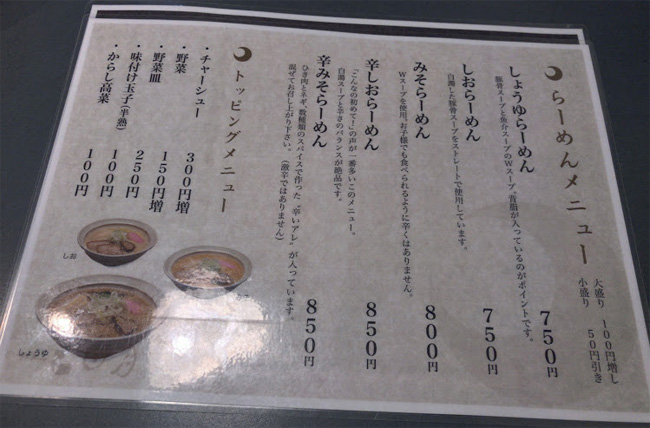 らーめんメニュー
大盛り 100円増し
小盛り 50円引き
しょうゆらーめん 750円
豚骨スープと魚介スープのWスープ。背脂が入っているのがポイントです。
しおらーめん 750円
白濁した豚骨スープをストレートで使用しています。
みそらーめん 800円
Wスープを使用。お子様でも食べられるように辛くはありません。
辛しおらーめん 850円
「こんなの初めて！」の声が一番多いこのメニュー。
白湯スープと辛さのバランスが絶品です。
辛みそらーめん 850円
ひき肉とネギ、数種類のスパイスで作った“辛いアレ”が入っています。
混ぜてお召し上がり下さい。（激辛ではありません）
トッピングメニュー
・チャーシュー 300円増
・野菜 150円増
・野菜皿 250円
・味付け玉子(半熟) 100円
・からし高菜 100円
しお
しょうゆ